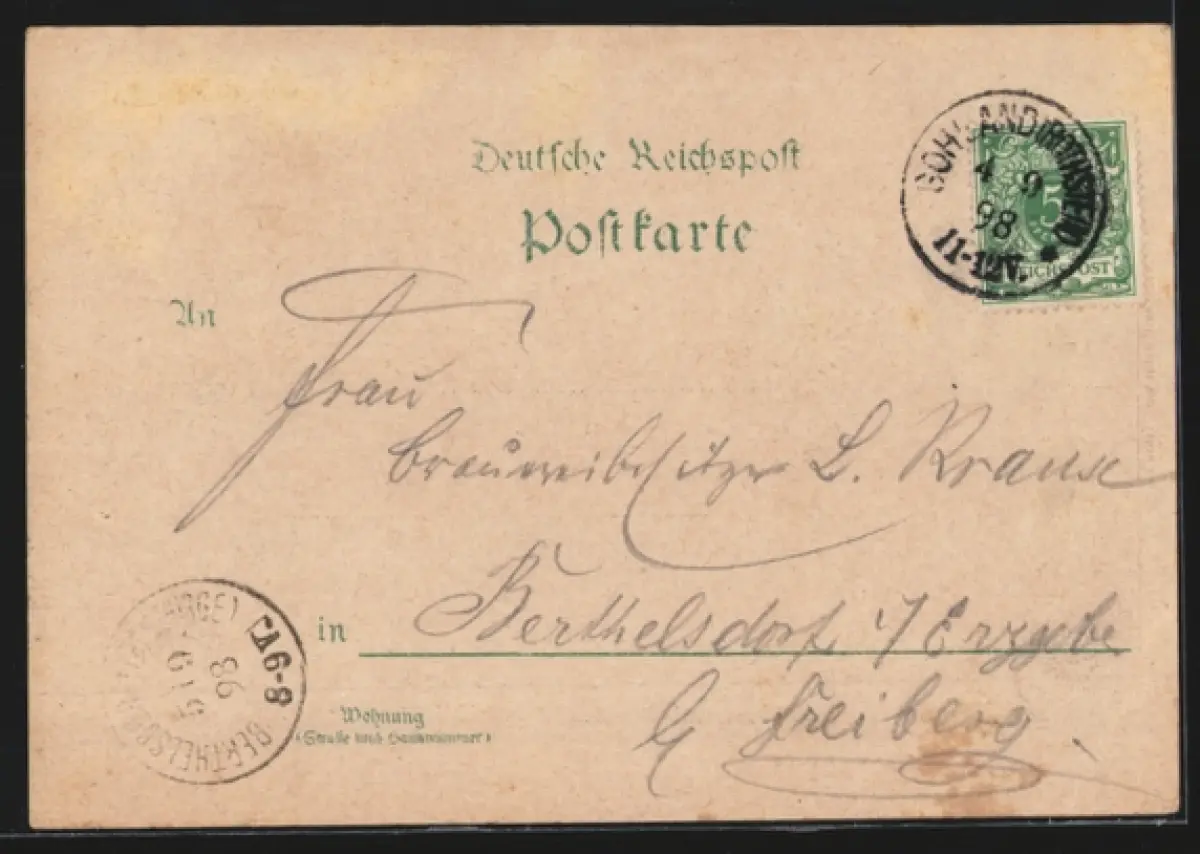 Deutsche Reichspost
Postkarte
4 9
98
11-12V.
5
REICHSPOST
An
Frau
Brauereibesitzer L. Krause
in Berthelsdorf i/Erzgebe
b/ Freiberg.
Wohnung
(Straße und Hausnummer)
BERTHELSDORF
98
6-8